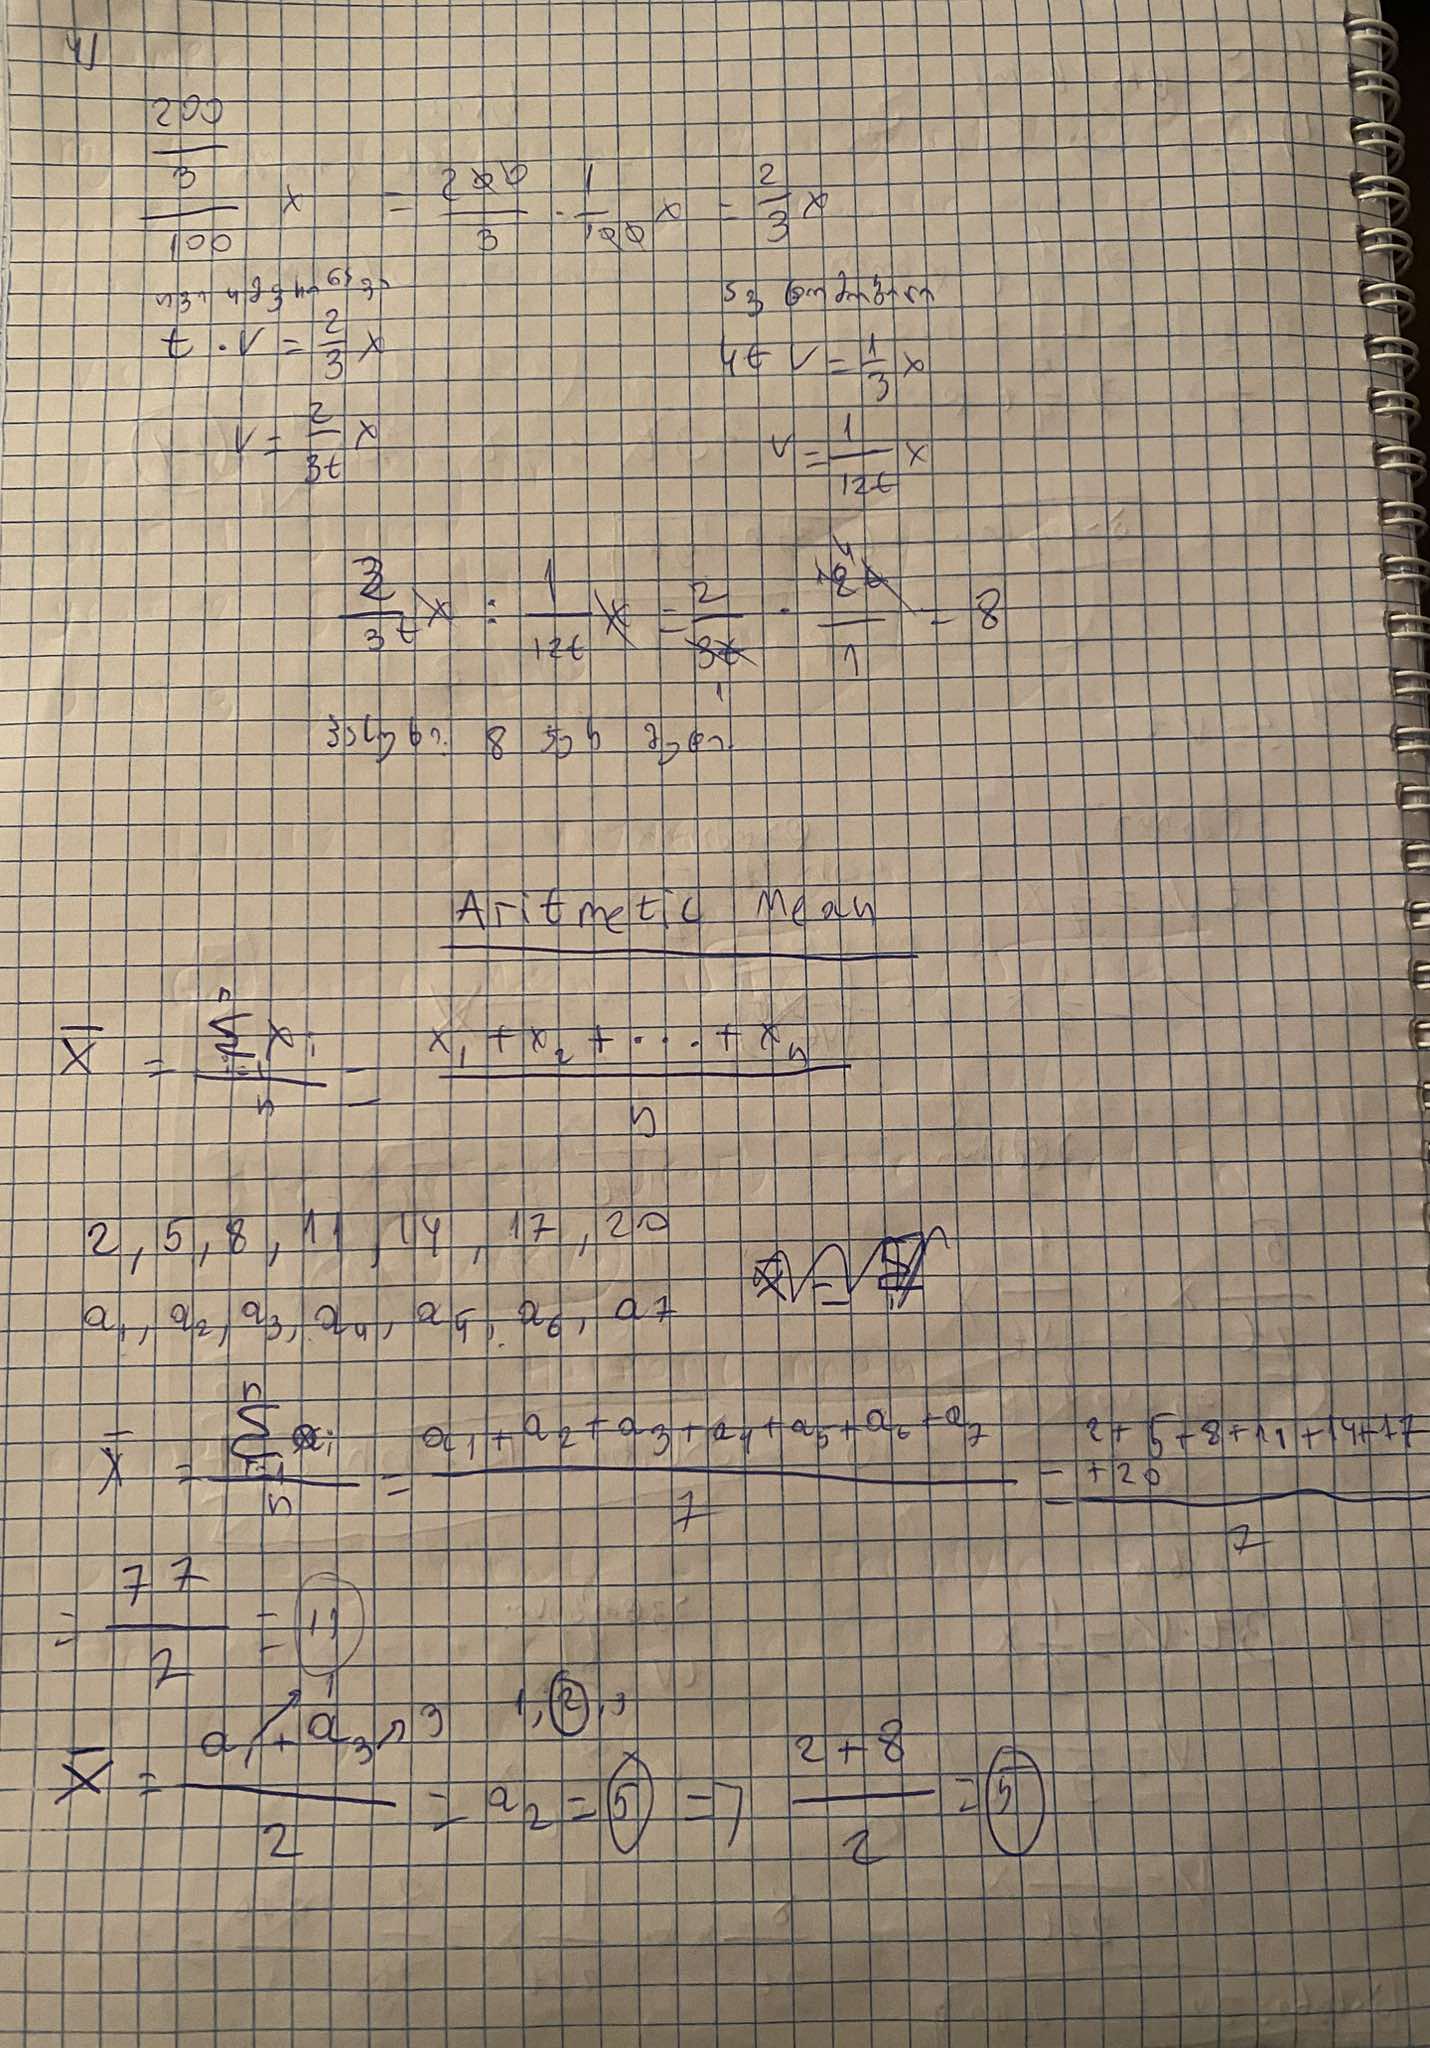 4)
200
3
100
x = 200/3 · 1/100 x = 2/3 x
t · v = 2/3 x
4t v = 1/3 x
v = 2/3t x
v = 1/12t x
2/3t x : 1/12t x = 2/3t · 12t/1 = 8
4
1
პასუხი: 8
Aritmetic Mean
x̄ = ∑ⁿᵢ₌₁ xᵢ / n = x₁ + x₂ + ... + xₙ / n
2, 5, 8, 11, 14, 17, 20
a₁, a₂, a₃, a₄, a₅, a₆, a7
x̄ = ∑ⁿᵢ₌₁ aᵢ / n = a₁ + a₂ + a₃ + a₄ + a₅ + a₆ + a₇ / 7 = 2 + 5 + 8 + 11 + 14 + 17 + 20 / 7
= 77 / 7 = 11
1 3 1, 2, 3
x̄ = a₁ + a₃ / 2 = a₂ = 5 => 2 + 8 / 2 = 5